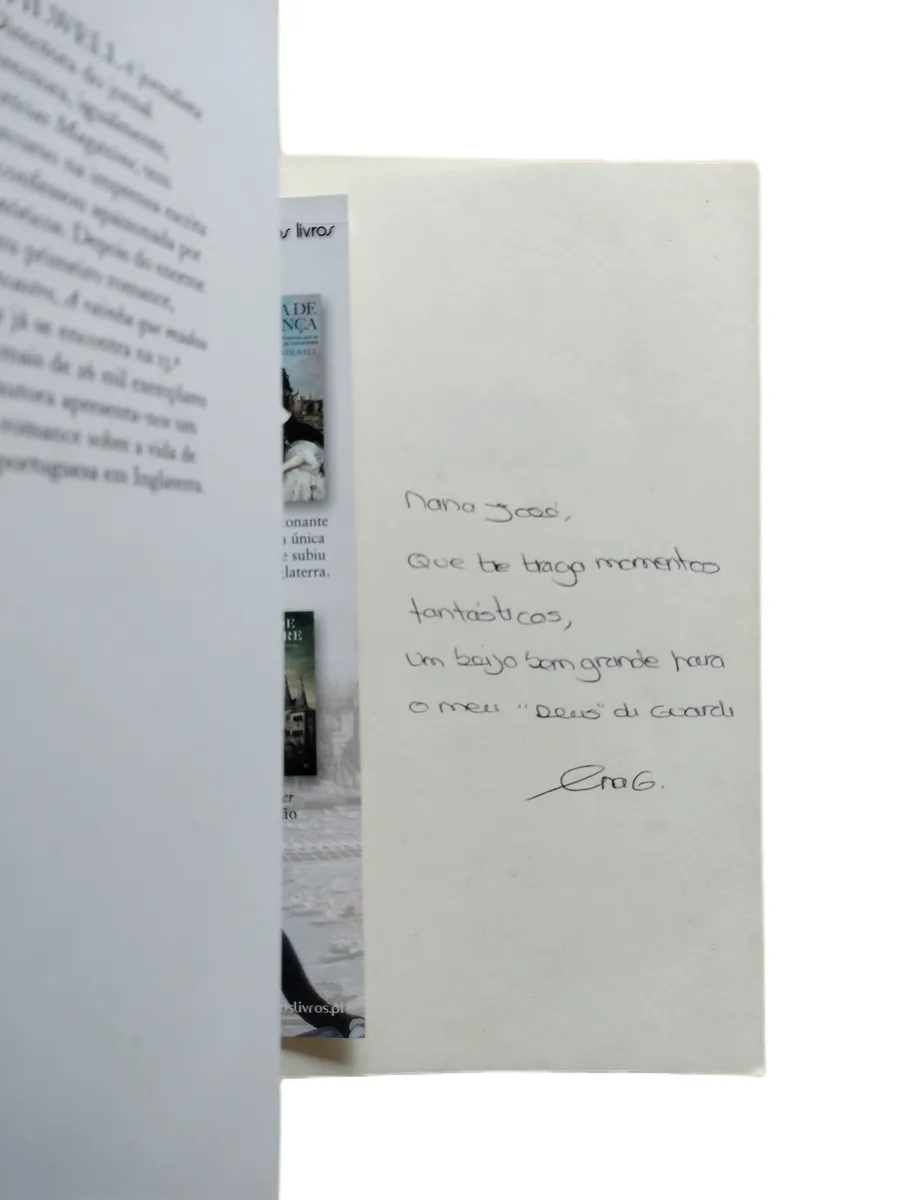 é jornalista
Directora do jornal
igualmente,
Magazine, tem
na imprensa escrita
apaixonada por
Depois do enorme
primeiro romance,
A rainha que mudou
já se encontra na 13.ª
mais de 26 mil exemplares
autora apresenta-nos um
romance sobre a vida de
portuguesa em Inglaterra.
os livros
A DE
NÇA
onante
a única
e subiu
laterra.
E
RE
er
ão
oslivros.pt
Maria José,
Que te traga momentos
fantásticos,
um beijo bem grande para
o meu "Deus" da Guarda
Ana G.